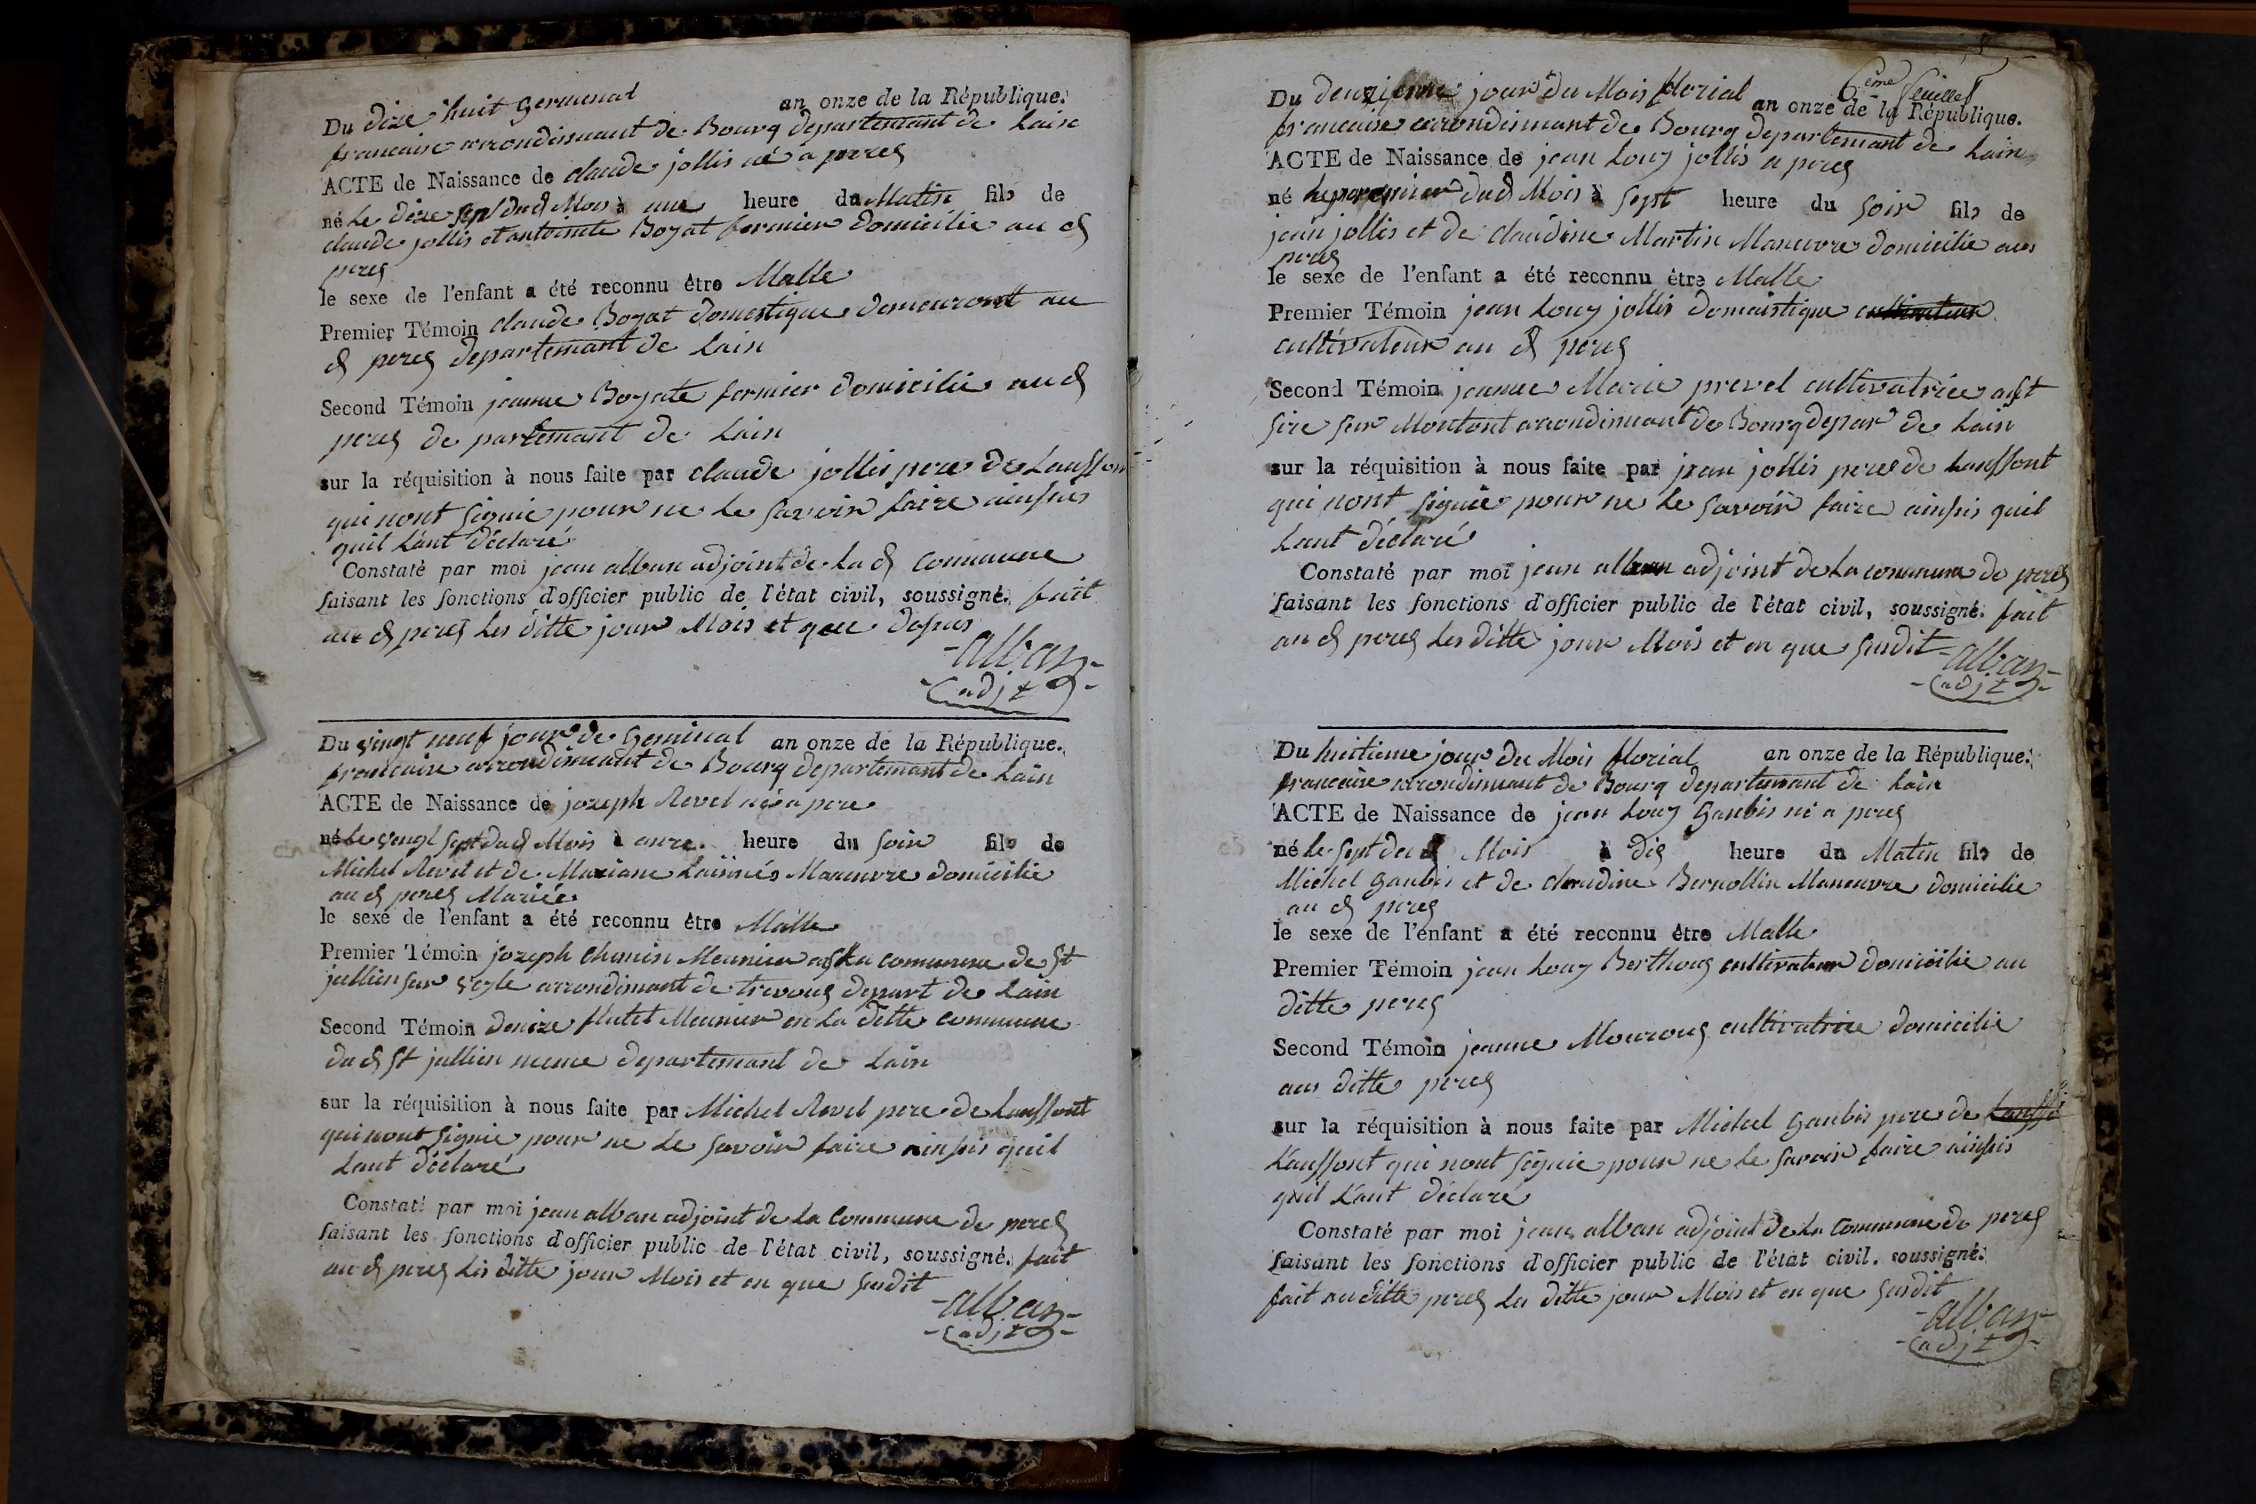 Du dize huit Germinal an onze de la République.
francaise arrondimant de Bourg departemant de Lain
ACTE de Naissance de claude jollis né a peres
né Le dize sept dud Mois à une heure du Matin fils de
claude jollis et antoinete Boyat fermier domicilie au d
peres
le sexe de l'enfant a été reconnu être Malle
Premier Témoin claude Boyat domestique demeurant au
d peres departemant de Lain
Second Témoin jeanne Boyate fermier domicilie au d
peres de partemant de Lain
sur la réquisition à nous faite par claude jollis pere de Lanffon
qui nont signie pour ne le savoir faire ainssis
quil Lant déclaré
Constaté par moi jean alban adjoint de La d Commune
faisant les fonctions d'officier public de l'état civil, soussigné. fait
au d peres Les ditte jour Mois et que
alban
adjt
Du vingt neuf jour de Geminal an onze de la République.
francaise arrondimant de Bourg departemant de Lain
ACTE de Naissance de jozeph Revel né a pere
né Le vengt sept dud Mois à onze heure du soir fils de
Michel Revel et de Mariane Manuvre domicilie
au d peres Mariée
le sexe de l'enfant a été reconnu être Malle
Premier Témoin jozeph chanin Meunier a La commune de St
jullien sur veyle arrondimant de trevoux depart de Lain
Second Témoin denize flutet Meunier en La ditte commune
du d St jullien meme departemant de Lain
sur la réquisition à nous faite par Michel Revel pere de Lanffont
qui nont signie pour ne le savoir faire ainssis quil
Lant déclaré
Constaté par moi jean alban adjoint de La Commune de peres
faisant les fonctions d'officier public de l'état civil, soussigné. fait
au d peres Les ditte jour Mois et en que susdit
alban
adjt
6eme feuillet
Du deuzieme jour du Mois florial an onze de la République.
francaise arrondimant de Bourg departemant de Lain
ACTE de Naissance de jean Louy jollis a peres
né Le premier dud Mois à sept heure du soir fils de
jean jollis et de claudine Martin Manuvre domicilie au
peres
le sexe de l'enfant a été reconnu être Malle
Premier Témoin jean Louy jollis domaistique cultivateur
cultivateur au d peres
Second Témoin jeanne Marie prevel cultivatrice a St
sire sur Montont arrondimant de Bourg depar de Lain
sur la réquisition à nous faite par jean jollis peres de Lanffont
qui nont signie pour ne le savoir faire ainssis quil
Lant déclaré
Constaté par moi jean alban adjoint de La commune de peres
faisant les fonctions d'officier public de l'état civil, soussigné. fait
au d peres Les ditte jour Mois et en que susdit
alban
adjt
Du huitieme jour du Mois florial an onze de la République.
francaise arrondimant de Bourg departemant de Lain
ACTE de Naissance de jean Louy Ganbis né a peres
né Le sept du d Mois à dix heure du Matin fils de
Michel Ganbis et de claudine Bernollin Maneuvre domicilie
au d peres
le sexe de l'enfant a été reconnu être Malle
Premier Témoin jean Louy Berthoux cultivateur domicilie au
ditte peres
Second Témoin jeanne Mouroux cultivatrice domicilie
au ditte peres
sur la réquisition à nous faite par Michel Ganbis pere de
Lanffont qui nont signie pour ne le savoir faire ainssis
quil Lant déclaré
Constaté par moi jean alban adjoint de La Commune de peres
faisant les fonctions d'officier public de l'état civil. soussigné.
fait au ditte peres Les ditte jour Mois et en que susdit
alban
adjt